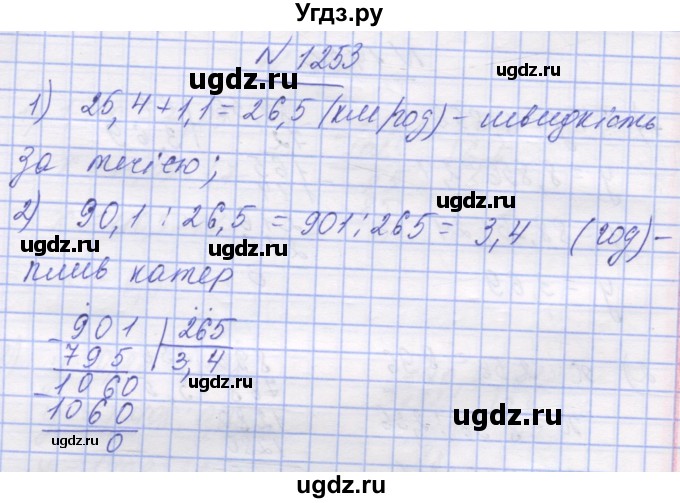 Угдз.ру
N 1253
1) 25,4 + 1,1 = 26,5 (км/год) - швидкість
за течією;
2) 90,1 : 26,5 = 901 : 265 = 3,4 (год) -
плив катер
- 901 | 265
795 | 3,4
- 1060
1060
0
ugdz.ru
ugdz.ru
ugdz.ru
ugdz.ru
ugdz.ru
ugdz.ru
ugdz.ru
ugdz.ru